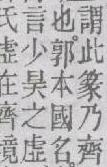 謂此篆乃齊
也郭本國名
言少昊之虛
氏虛在齊境